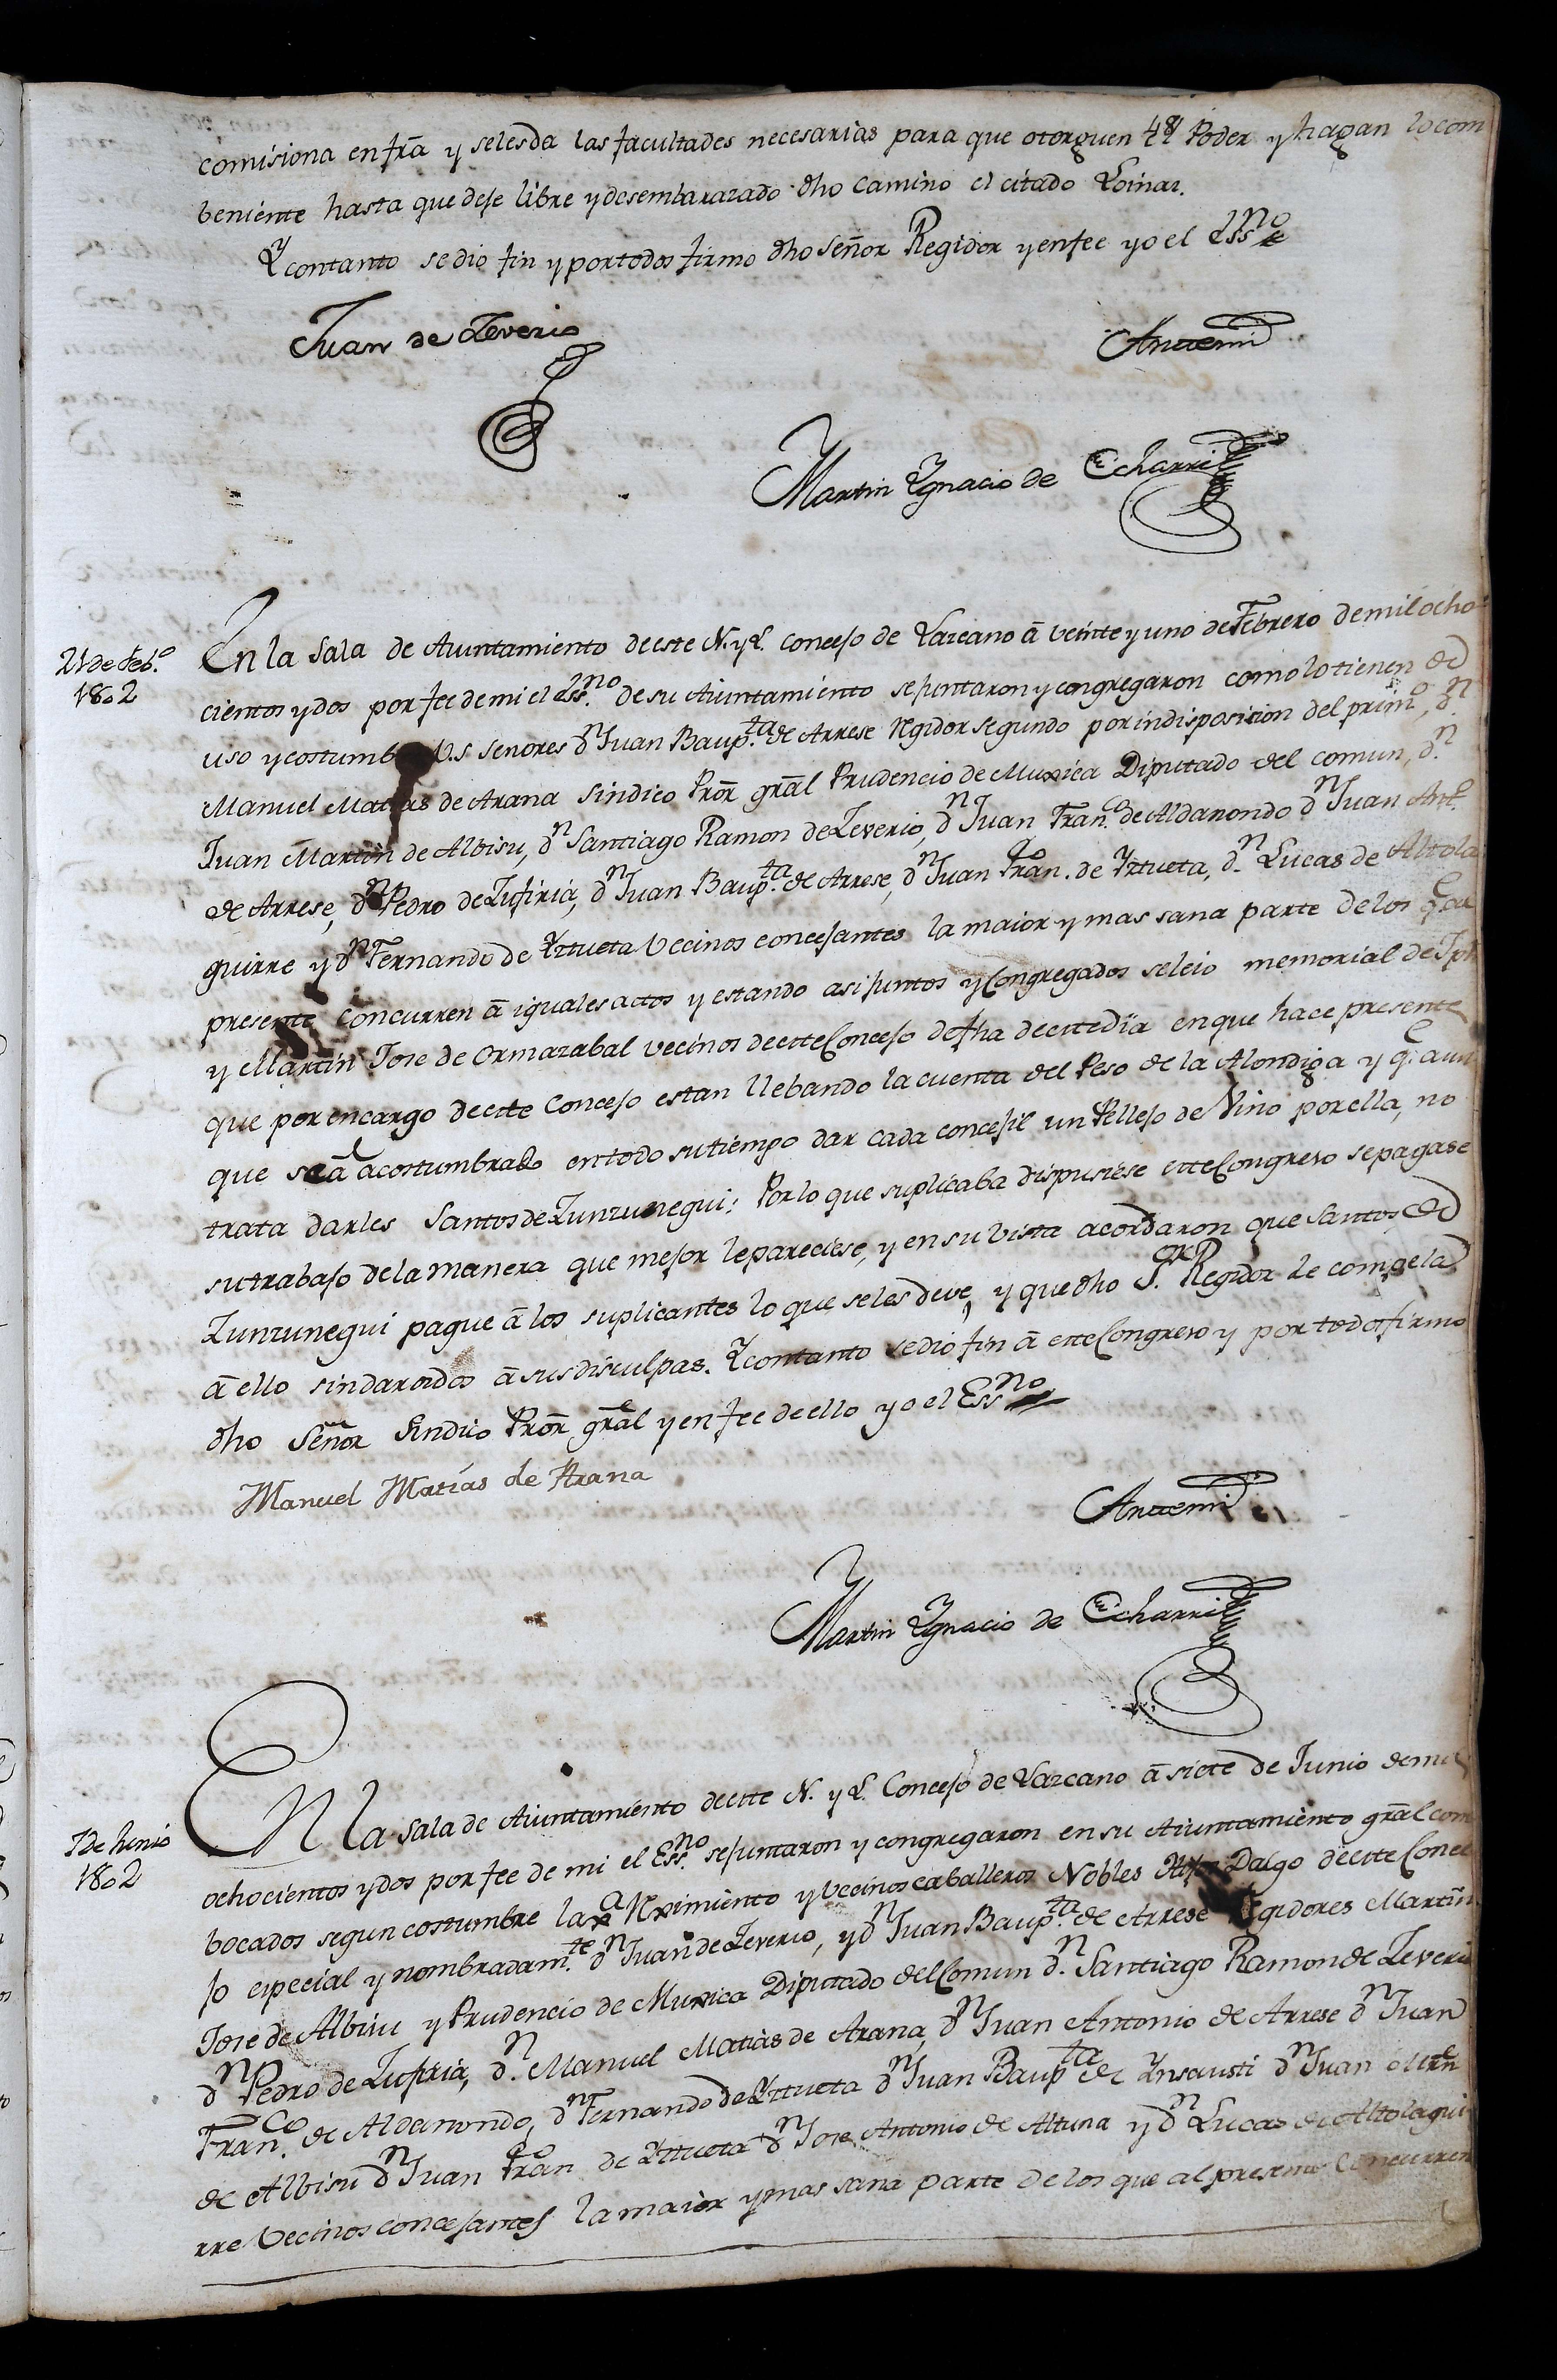 comisiona en fra y selesda las facultades necesarias para que otorguen el Poder y hagan lo com
beniente hasta que deje libre y desembarazado dho camino el citado Loinaz.
Y contanto se dio fin y portodos firmo dho señor Regidor y enfee yo el Essno
Juan de Zeverio
Antemi
Martin Ygnacio de Echarri
21 de Feb.o
1802
En la Sala de Aiuntamiento de este N. y L. concejo de Lazcano á veinte y uno de Febrero de mil ocho
cientos y dos por fee de mi el Essno de su Aiuntamiento se juntaron y congregaron como lo tienen de
uso y costumb los señores dn Juan Baupta de Arrese Regidor segundo por indisposicion del primo, dn
Manuel Matias de Arana Sindico Pror gral Prudencio de Muxica Diputado del comun, dn
Juan Martin de Albisu, dn Santiago Ramon de Zeverio, dn Juan Franco de Aldanondo dn Juan Anto
de Arrese, dn Pedro de Zufiria, dn Juan Baupta de Arrese, dn Juan Franco de Yztueta, dn Lucas de Altola
guirre y dn Fernando de Yztueta Vecinos concejantes la maior y mas sana parte de los qe al
presente concurren á iguales actos y estando asi juntos y Congregados se leio memorial de Jph
y Martin Jose de Ormazabal vecinos de este Concejo de fha de este dia en que hace presente
que por encargo de este Concejo estan llebando la cuenta del Peso de la Alondiga y qe aun
que se á acostumbrado en todo su tiempo dar cada concejil un Pellejo de Vino por ella, no
trata darles Santos de Zunzunegui: Por lo que suplicaba dispusiese este Congreso se pagase
su trabajo de la manera que mejor le pareciese, y en su vista acordaron que Santos de
Zunzunegui pague á los suplicantes lo que se les deve, y que dho Sr. Regidor le compela
á ello sin dar oidos á sus disculpas. Y contanto se dio fin á este Congreso y por todos firmo
dho Señor Sindico Pror gral y en fee de ello yo el Essno
Manuel Matías de Arana
Antemi
Martin Ygnacio de Echarri
7 de Junio
1802
En la Sala de Aiuntamiento de este N. y L. Concejo de Lazcano á siete de Junio de mil
ochocientos y dos por fee de mi el Essno se juntaron y congregaron en su Aiuntamiento gral com
bocados segun costumbre la y Vecinos caballeros Nobles Dalgo de este Conce
jo especial y nombradamte dn Juan de Zeverio, y dn Juan Baupta de Arrese Regidores Martin
Jose de Albisu y Prudencio de Muxica Diputado del Comun dn Santiago Ramon de Zeverio
dn Pedro de Zufiria, dn Manuel Matias de Arana, dn Juan Antonio de Arrese dn Juan
Franco de Aldanondo, dn Fernando de Yztueta dn Juan Baupta de Ynsausti dn Juan Mrn
de Albisu dn Juan Franco de Yztueta dn Jose Antonio de Altuna y dn Lucas de Altolagui
rre Vecinos concejantes la maior y mas sana parte de los que al presente concurren